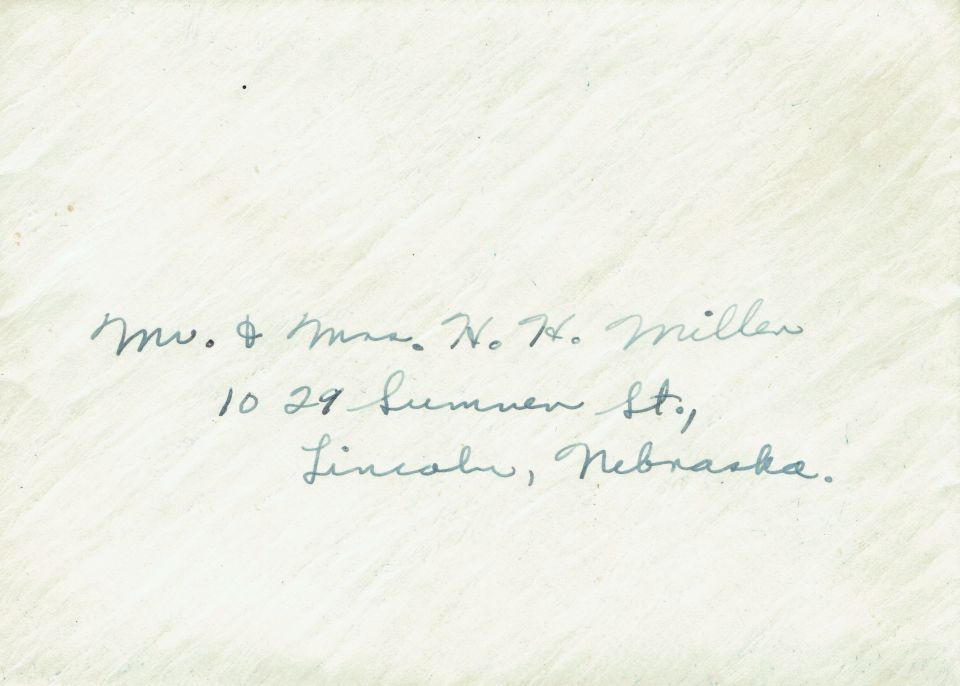 Mr. & Mrs. H. H. Miller
1029 Sumner St.,
Lincoln, Nebraska.